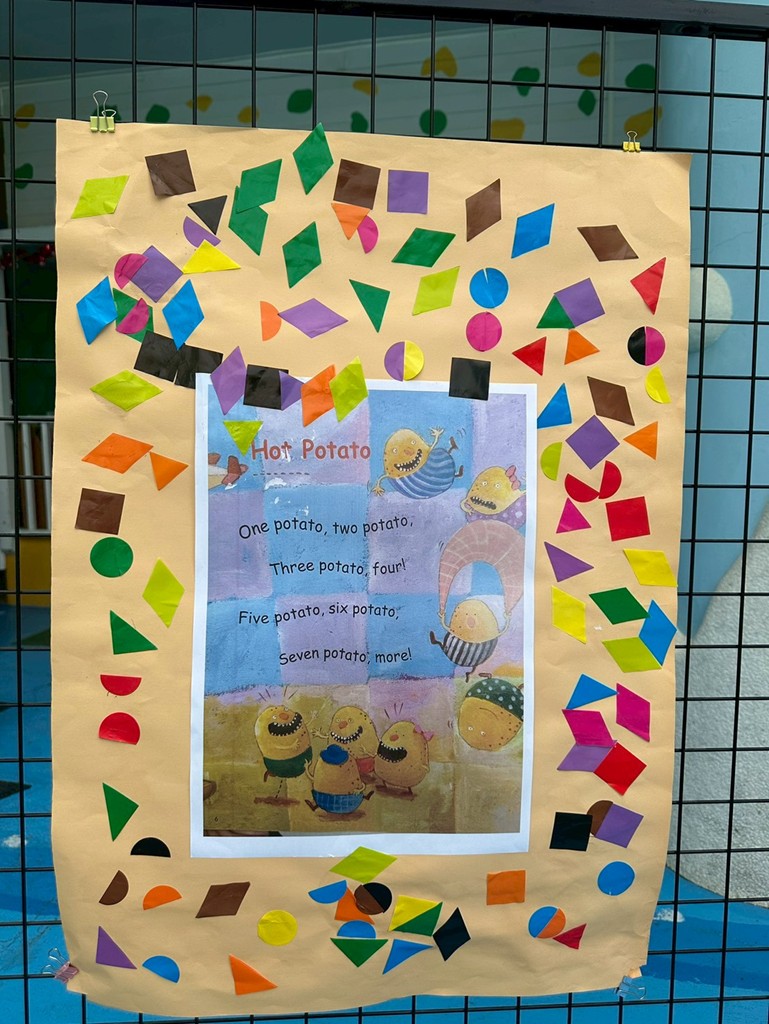 Hot Potato
One potato, two potato,
Three potato, four!
Five potato, six potato,
Seven potato, more!